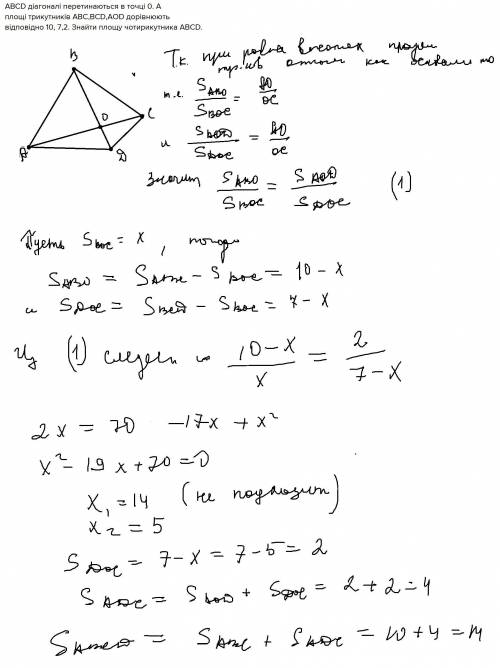 ABCD діагоналі перетинаються в точці 0. А
площі трикутників ABC,BCD,AOD дорівнюють
відповідно 10, 7,2. Знайти площу чотирикутника ABCD.
B
C
O
A
D
Т.к. при равна высотах
как
т.е. S_ABO / S_BOC = AO / OC
и S_AOD / S_DOC = AO / OC
Значит S_ABO / S_BOC = S_AOD / S_DOC (1)
Пусть S_BOC = x , тогда
S_ABO = S_ABC - S_BOC = 10 - x
и S_DOC = S_BCD - S_BOC = 7 - x
Из (1) следует 10-x / x = 2 / 7-x
2x = 70 -17x + x²
x² - 19x + 70 = 0
x₁ = 14 (не подходит)
x₂ = 5
S_DOC = 7-x = 7-5 = 2
S_ADC = S_AOD + S_DOC = 2+2=4
S_ABCD = S_ABC + S_ADC = 10+4=14